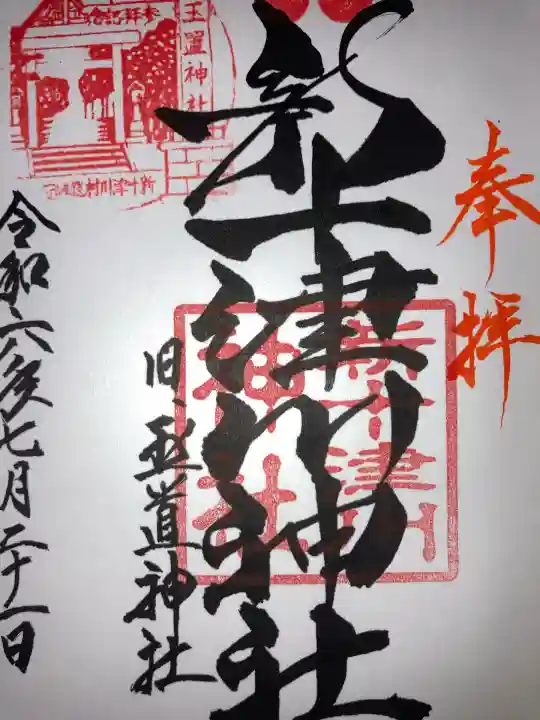 奉拝
新十津川神社
新十津川
神社
旧玉置神社
令和六年七月二十一日
参拝記念
玉置神社